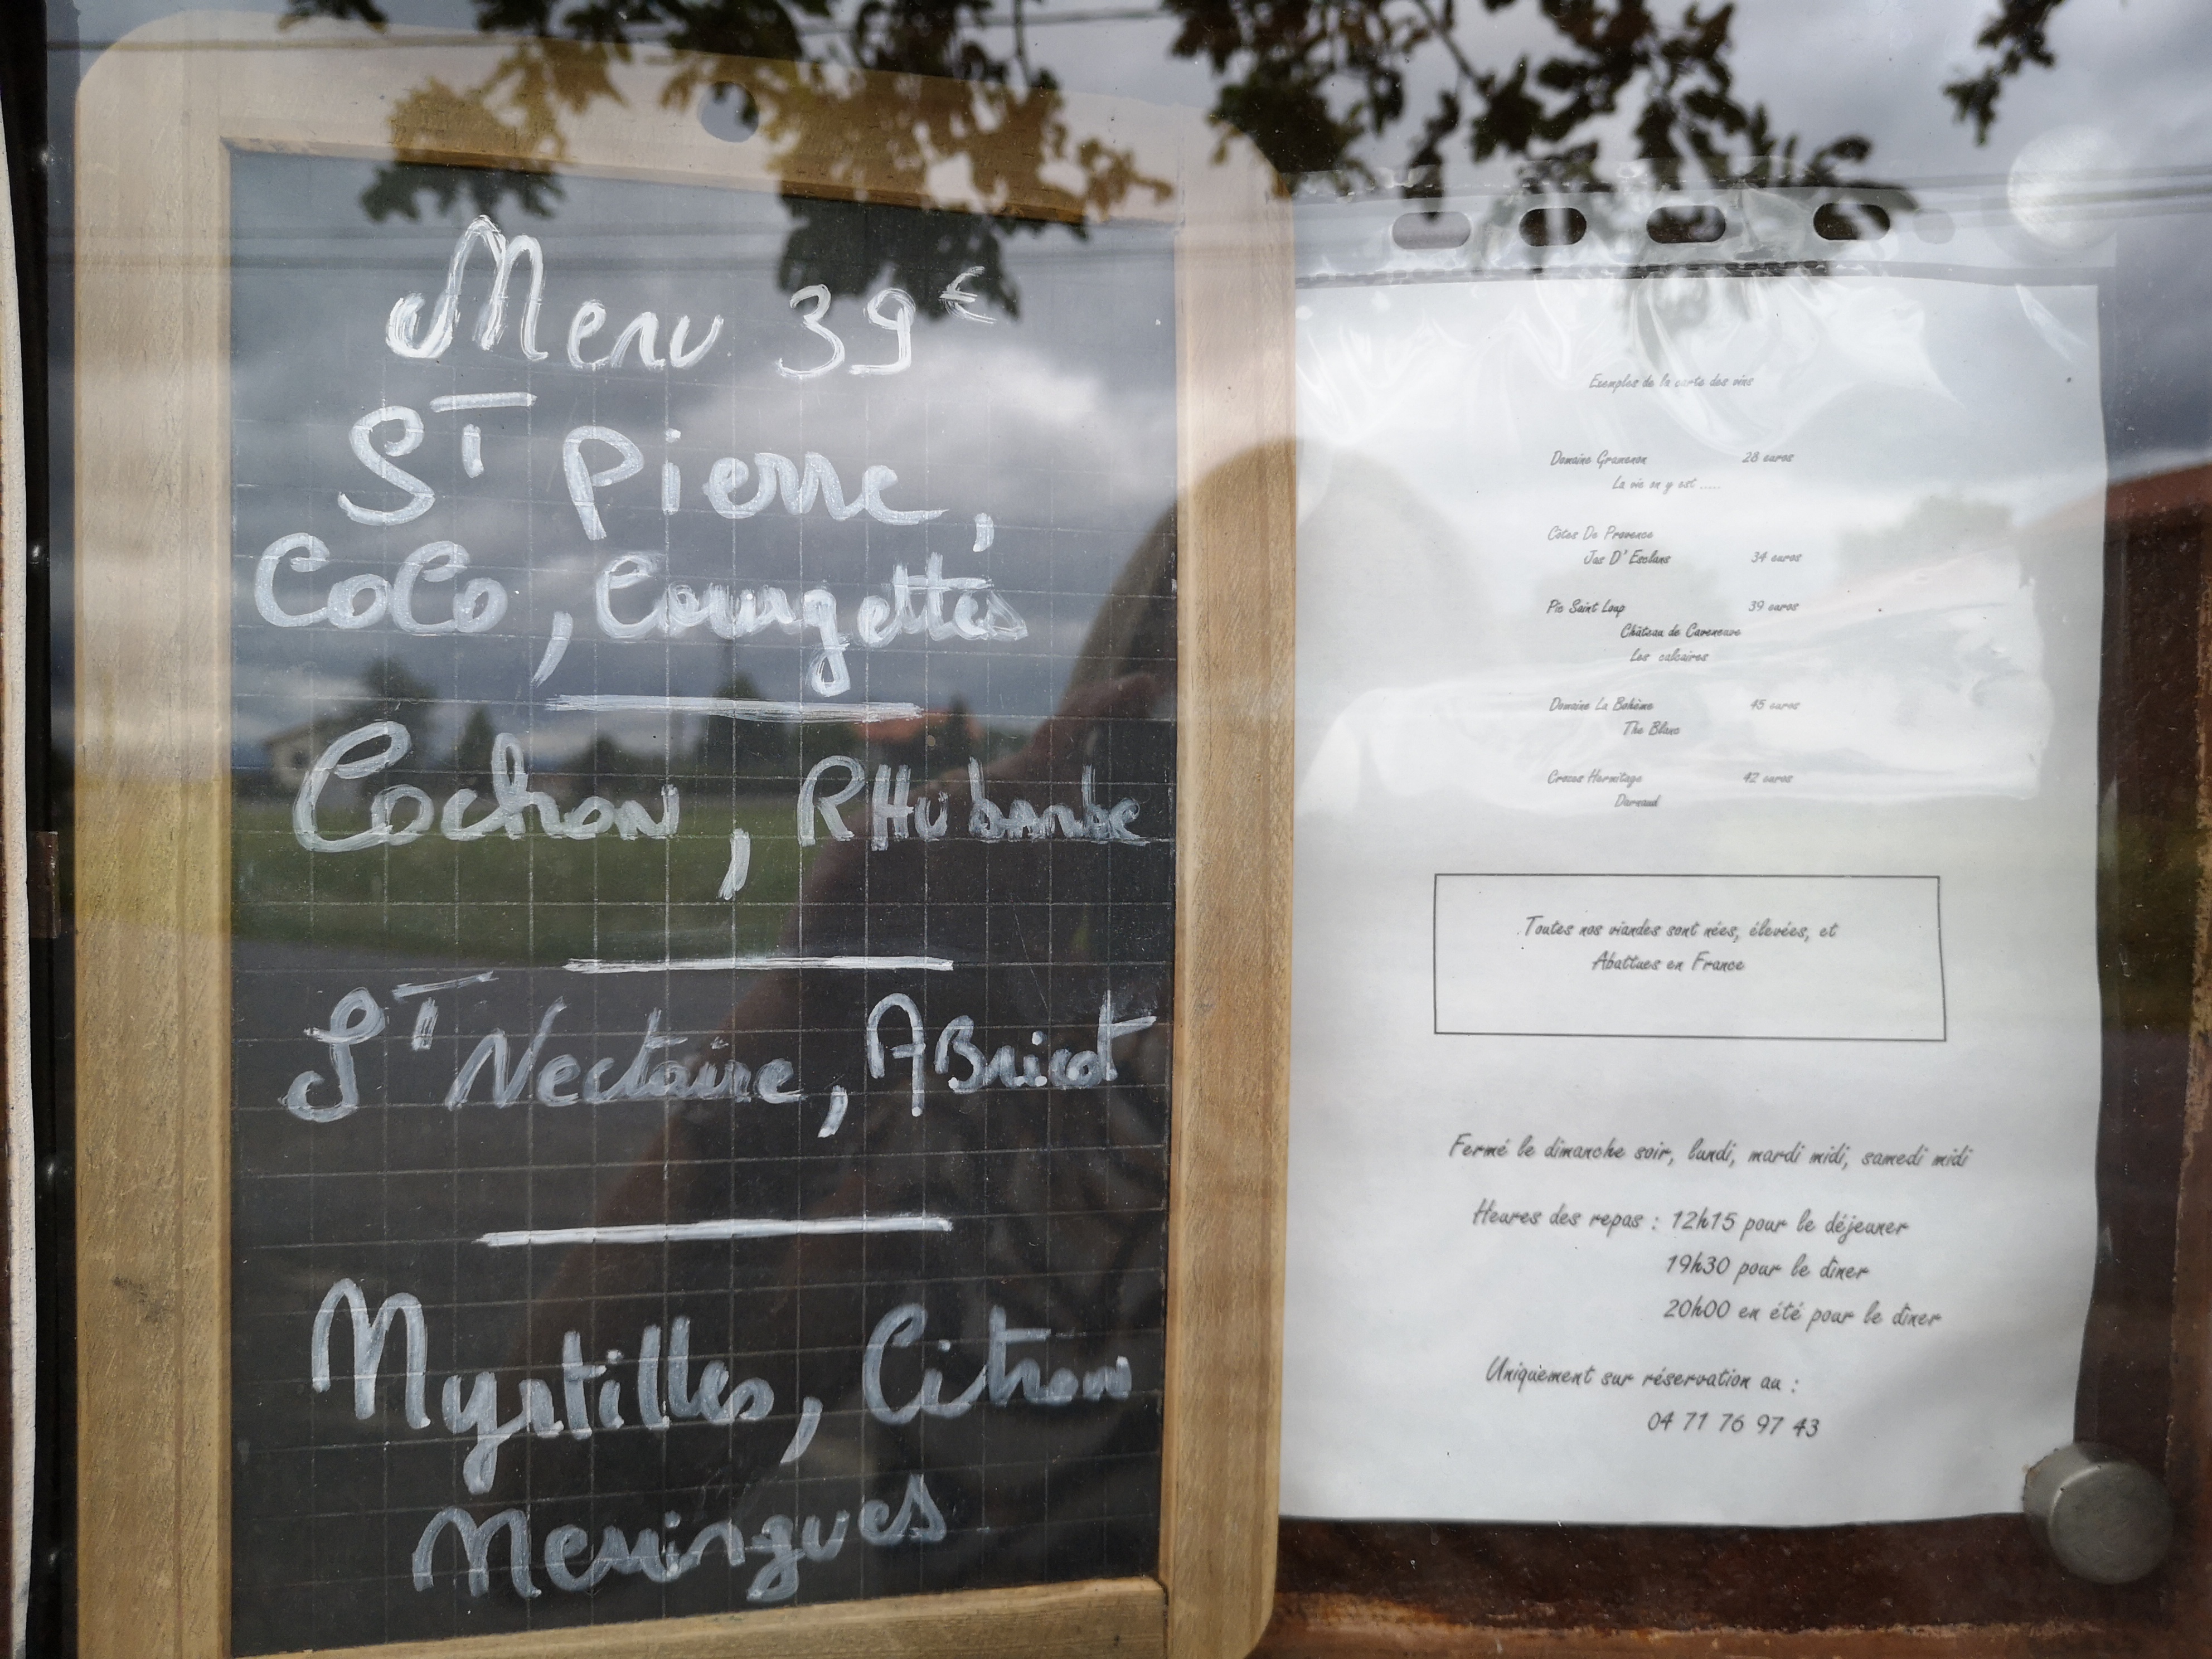 Menu 39€
St Pierre,
CoCo, Courgettes
Cochon, RHubarbe
St Nectaire, ABricot
Myrtilles, Citron
Meringues
Exemples de la carte des vins
Domaine Gramenon 28 euros
La vie on y est .....
Côtes De Provence
Jas D' Esclans 34 euros
Pic Saint Loup 39 euros
Château de Cazeneuve
Les calcaires
Domaine La Bohème 45 euros
The Blanc
Crozes Hermitage 42 euros
Darnaud
Toutes nos viandes sont nées, élevées, et
Abattues en France
Fermé le dimanche soir, lundi, mardi midi, samedi midi
Heures des repas : 12h15 pour le déjeuner
19h30 pour le dîner
20h00 en été pour le dîner
Uniquement sur réservation au :
04 71 76 97 43